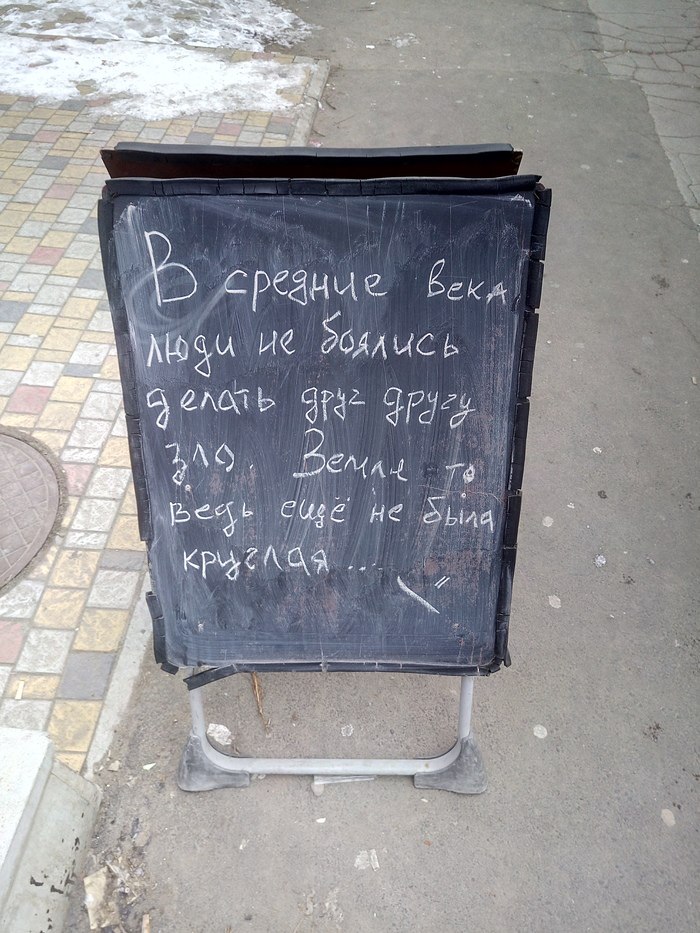 В средние века
люди не боялись
делать друг другу
зла. Земля то
ведь ещё не была
круглая ...